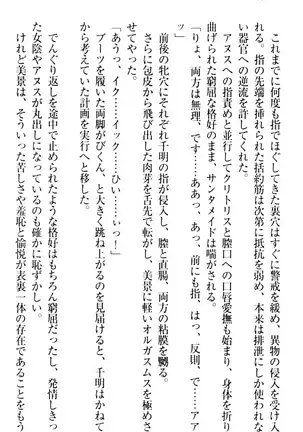 これまでに何度も指でほぐしてきた裏穴はすぐに警戒を緩め、異物の侵入を受け入
れる。指の先端を挿れられた括約筋は次第に抵抗を弱め、本来は排泄にしか使われな
い器官への逆流を許してくれた。
アヌスへの指責めと並行してクリトリスと膣口への口唇愛撫も始まり、身体を折り
曲げられた窮屈な格好のまま、サンタメイドは喘がされる。
「りょ、両方は無理、です……ああっ、あっ、前にも指、はっ、反則、で……アア
ッ」
前後の牝穴にそれぞれ千明の指が侵入し、膣と直腸、両方の粘膜を嬲る。
さらに包皮から飛び出した肉芽を舌先で転がし、美景に軽いオルガスムスを極めさ
せてやった。
「あうっ、イク……イッ……ひい……ーっ！」
ブーツを履いた両脚がびくん、と大きく跳ね上がるのを見届けると、千明はかねて
考えていた計画を実行へと移した。
でんぐり返しを途中で止められたような格好はもちろん窮屈だったし、発情しきっ
た女陰やアヌスが丸出しになっているのも確かに恥ずかしい。
けれど美景は、そういった苦しさや羞恥と愉悦が表裏一体の存在であることをもう